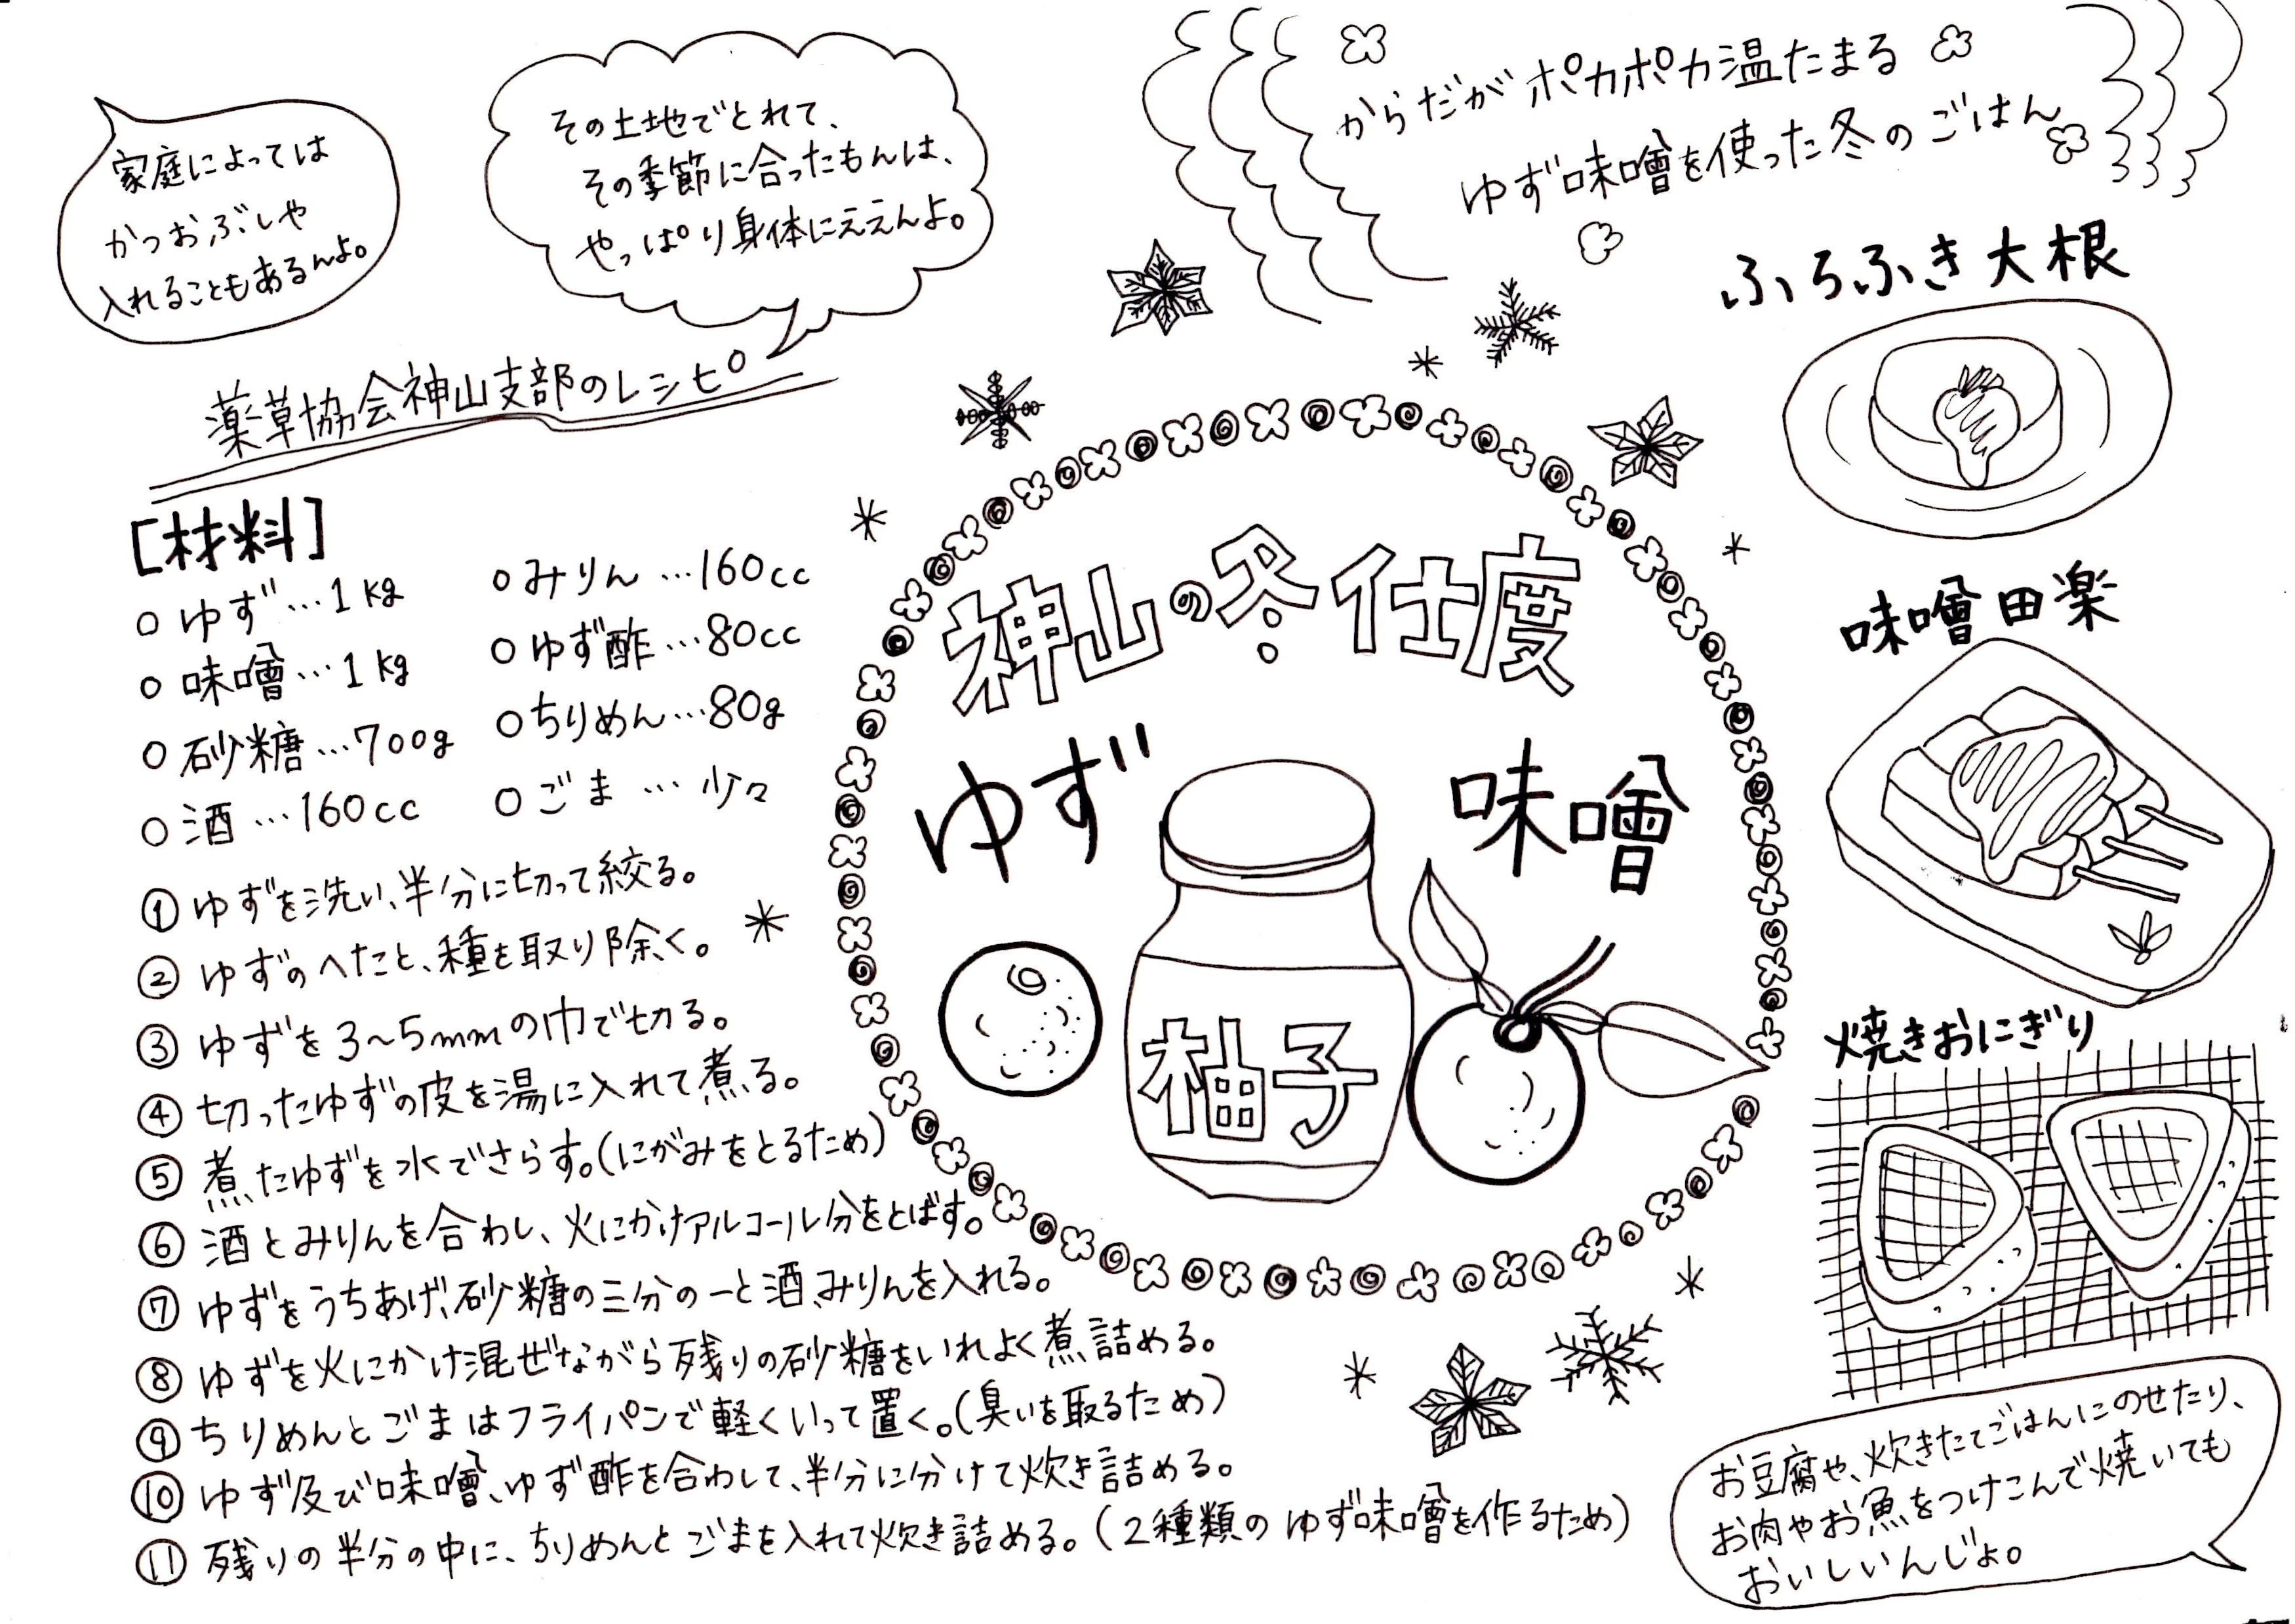 家庭によっては
かつおぶしや
入れることもあるんよ。
その土地でとれて、
その季節に合ったもんは、
やっぱり身体にええんよ。
からだがポカポカ温たまる
ゆず味噌を使った冬のごはん
薬草協会神山支部のレシピ
[材料]
○ ゆず…1kg
○ 味噌…1kg
○ 砂糖…700g
○ 酒…160cc
○ みりん…160cc
○ ゆず酢…80cc
○ ちりめん…80g
○ ごま…少々
① ゆずを洗い、半分に切って絞る。
② ゆずのへたと、種を取り除く。
③ ゆずを3〜5mmの巾で切る。
④ 切ったゆずの皮を湯に入れて煮る。
⑤ 煮たゆずを水でさらす。(にがみをとるため)
⑥ 酒とみりんを合わし、火にかけアルコール分をとばす。
⑦ ゆずをうちあげ、砂糖の三分の一と酒、みりんを入れる。
⑧ ゆずを火にかけ混ぜながら残りの砂糖をいれよく煮詰める。
⑨ ちりめんとごまはフライパンで軽くいって置く。(臭いを取るため)
⑩ ゆず及び味噌、ゆず酢を合わして、半分に分けて炊き詰める。
⑪ 残りの半分の中に、ちりめんとごまを入れて炊き詰める。(2種類のゆず味噌を作るため)
神山の冬仕度
ゆず 味噌
柚子
ふろふき大根
味噌田楽
焼きおにぎり
お豆腐や、炊きたてごはんにのせたり、
お肉やお魚をつけこんで焼いても
おいしいんじょ。